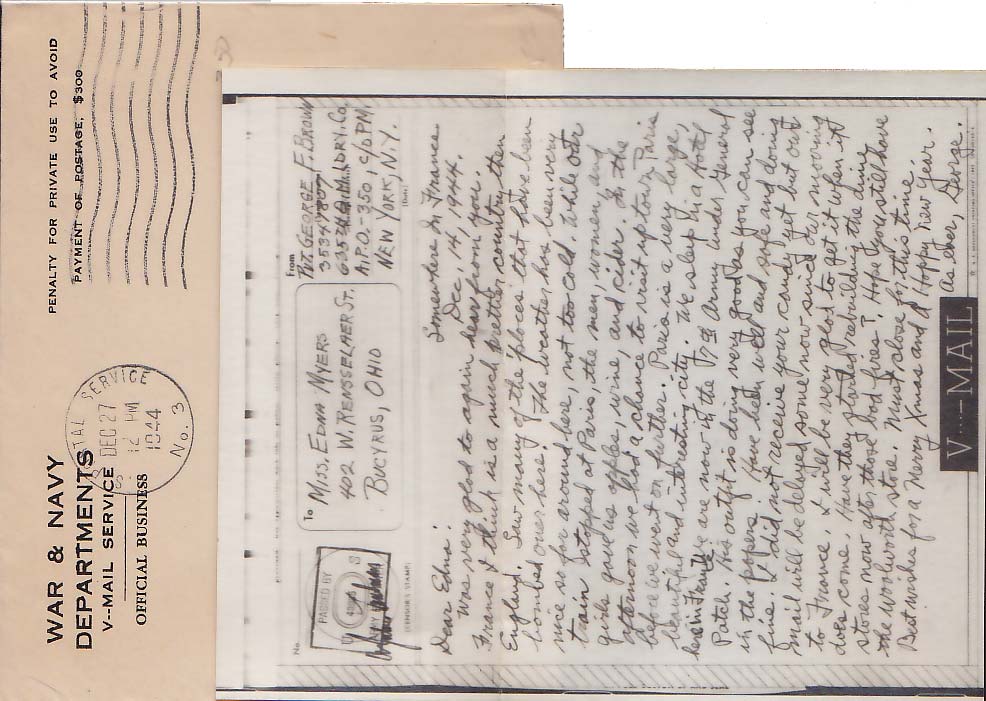 WAR & NAVY
DEPARTMENTS
V--MAIL SERVICE
OFFICIAL BUSINESS
PENALTY FOR PRIVATE USE TO AVOID
PAYMENT OF POSTAGE, $300
POSTAL SERVICE
DEC 27
12 PM
1944
No. 3
No.
PASSED BY
ARMY
(CENSOR'S STAMP)
To
MISS. EDNA MYERS
402 W. RENSSELAER ST.
BUCYRUS, OHIO
From
PVT. GEORGE F. BROWN
M. LDRY. CO.
A.P.O. 350, C/O P.M.
NEW YORK, N.Y.
(Date)
Somewhere In France
Dec, 14, 1944.
Dear Edna:
Was very glad to again hear from, you.
France I think is a much prettier country then
England. Saw many of the places that have been
bombed over here. The weather has been very
nice so far around here, not too cold. While our
train stopped at Paris, the men, women, and
girls gave us apples, wine, and cider. In the
afternoon we had a chance to visit uptown Paris
before we went on further. Paris is a very large,
beautiful and interesting city. We sleep in a Hotel
here in France are now in the 7th Army under General
Patch. His outfit is doing very good as you can see
in the papers. Have been well and safe and doing
fine. I did not receive your candy yet but our
mail will be delayed some now since after mooving
to France. I will be very glad to get it when it
does come. Have they started rebuilding the dime
stores now after those bad fires? Hope you still have
the woolworth store. Must close for this time.
Best wishes for a Merry Xmas and A Happy New Year.
As ever, George.
V···—MAIL